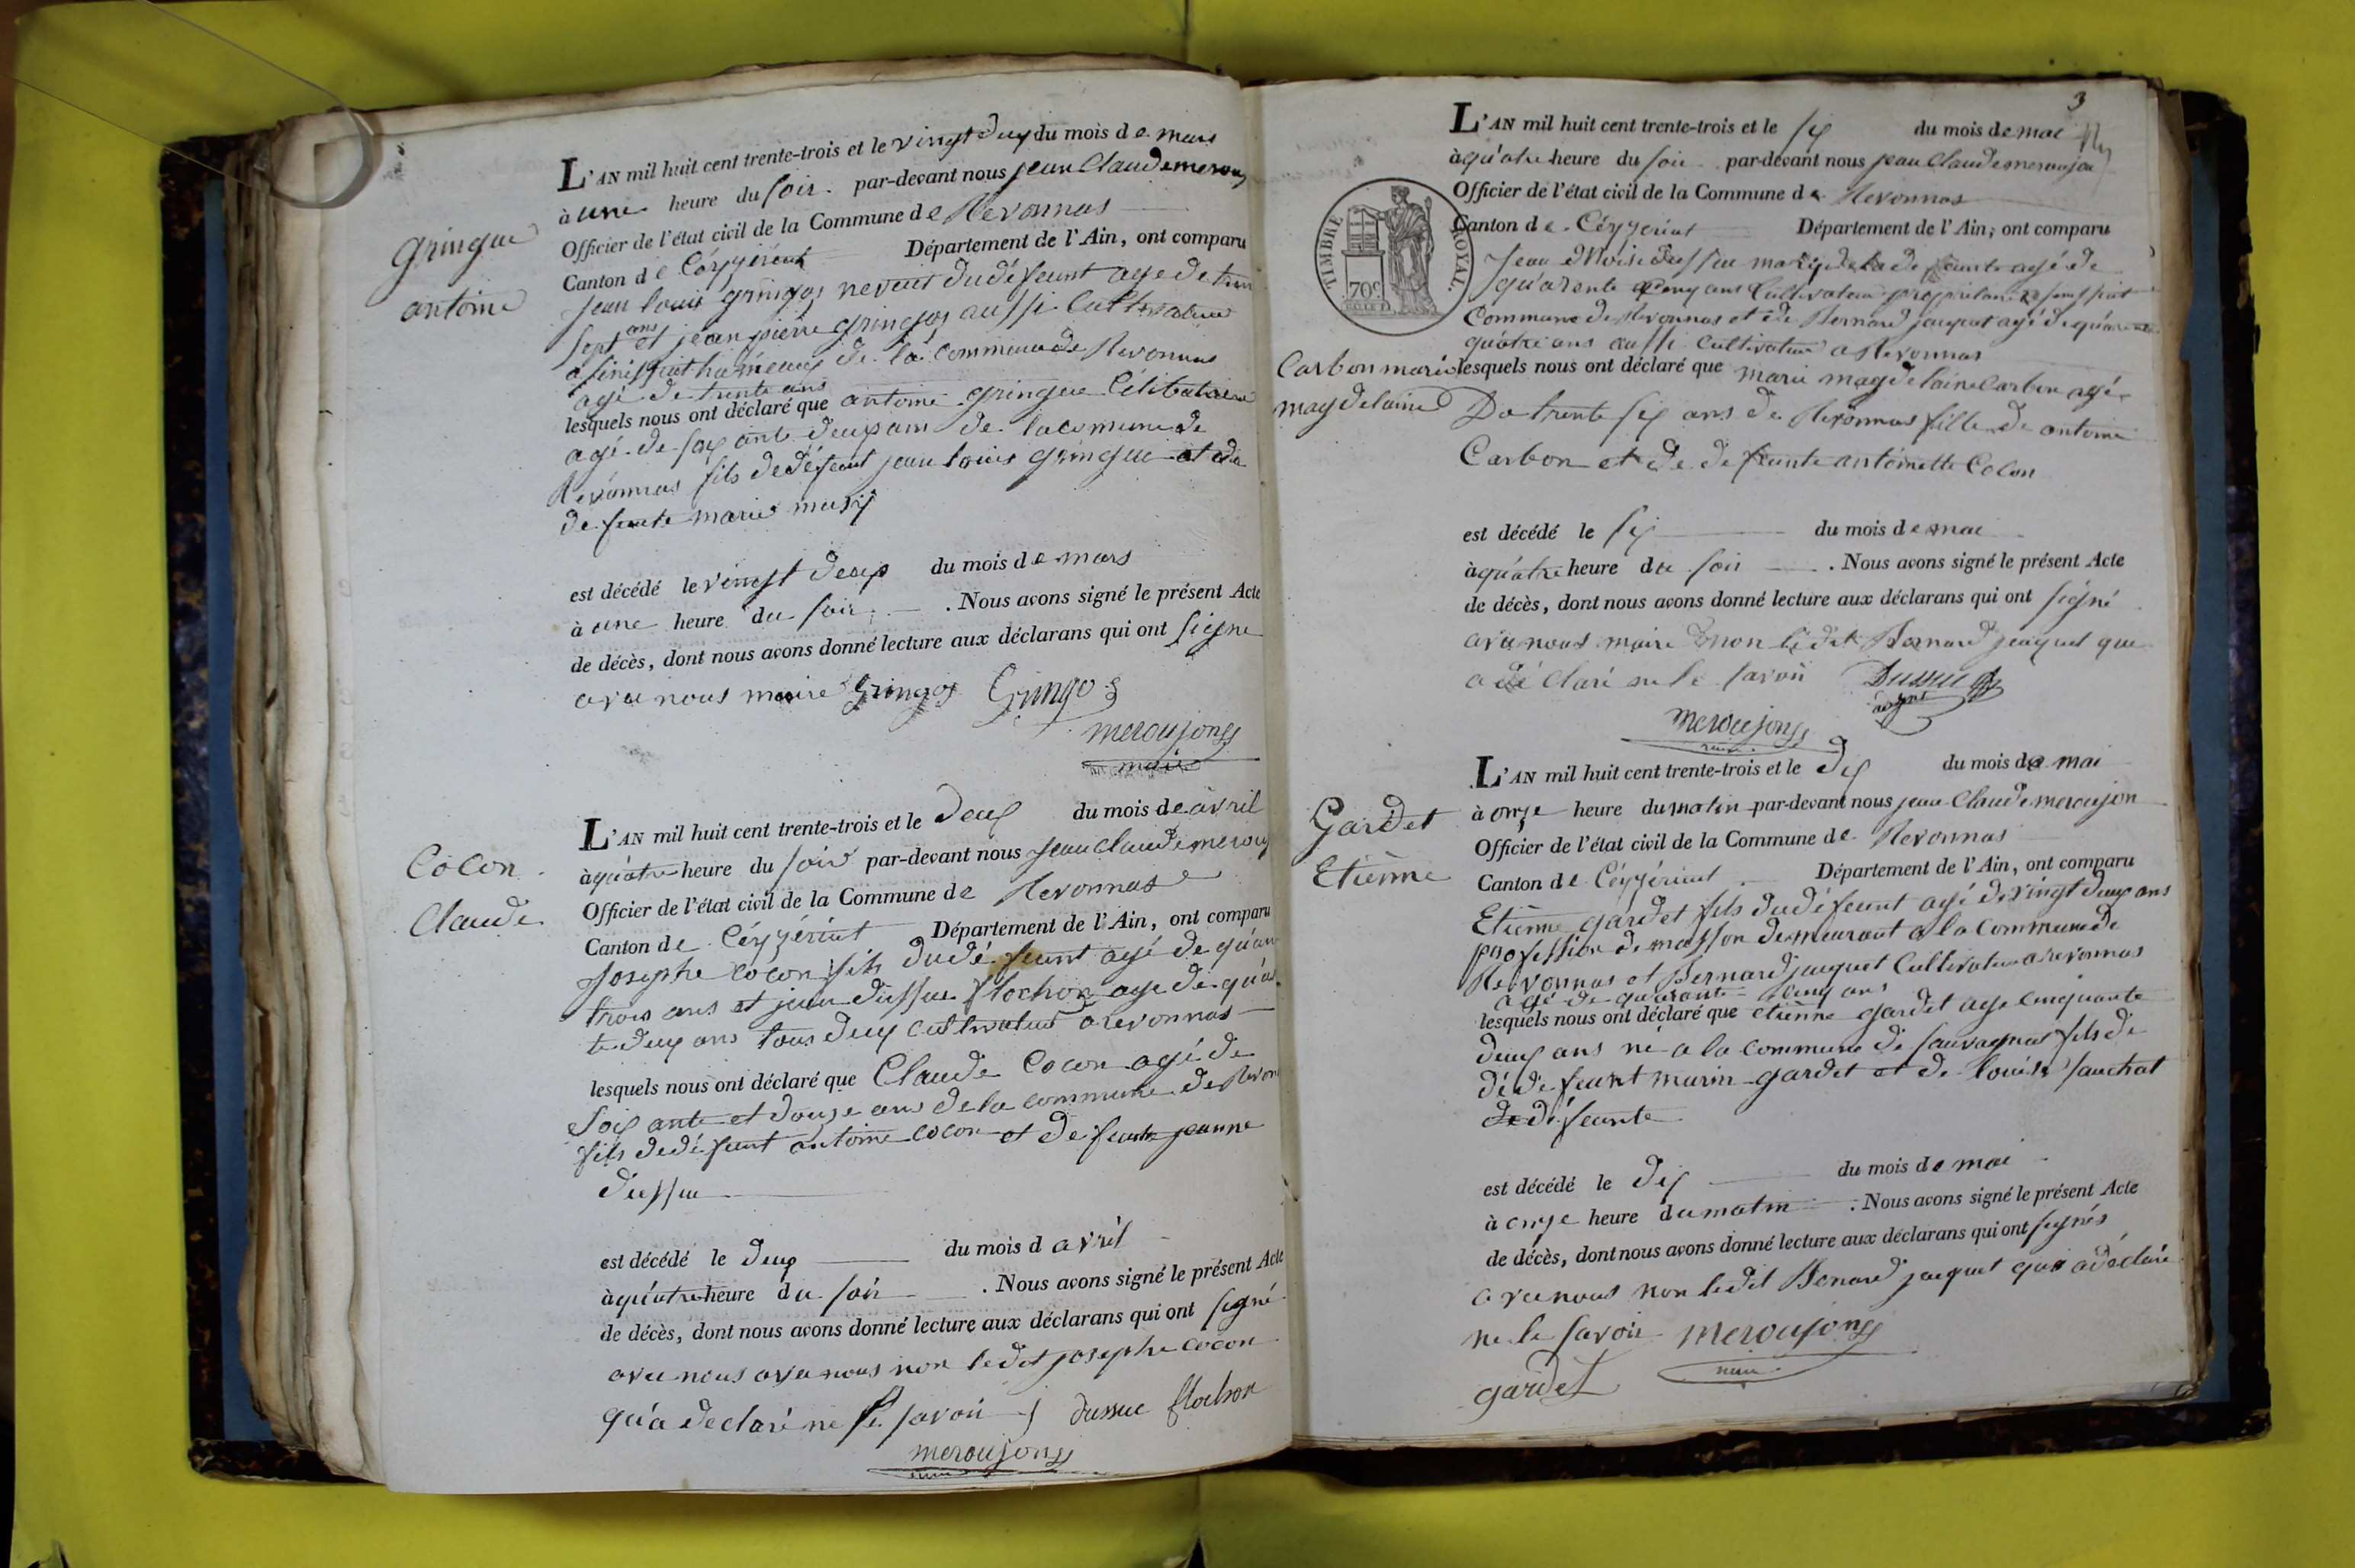 gringue
antoine
L'AN mil huit cent trente-trois et le vingt deux du mois de mars
à une heure du soir par-devant nous jean Claude merouj
Officier de l'état civil de la Commune de Revonnas
Canton de Céyzériat Département de l'Ain, ont comparu
jean louis gringoz neveut du défeunt agé de tren
sept ans et jean pierre gringoz aussi Cultivateur
a hameaux de la commune de Revonnas
agé de trente ans
lesquels nous ont déclaré que antoine gringue Célibataire
agé de soixante deux ans de la comune de
Revonnas fils de défeunt jean louis gringue et de
defeunte marie musy
est décédé le vingt deux du mois de mars
à une heure du soir. Nous avons signé le présent Acte
de décès, dont nous avons donné lecture aux déclarans qui ont signe
avec nous maire Gringoz Gringoz
meroujong
maire
Cocon
Claude
L'AN mil huit cent trente-trois et le deux du mois de avril
à quatre heure du soir par-devant nous jean claude merouj
Officier de l'état civil de la Commune de Revonnas
Canton de Céyzériat Département de l'Ain, ont comparu
Josephe cocon fils du défeunt agé de quaran
trois ans et jean dussue flochon age de quaran
te deux ans tous deux cultivateur a revonnas
lesquels nous ont déclaré que Claude Cocon agé de
soixante et douze ans de la commune de Revon
fils de défeunt antoine cocon et defeunte jeanne
dussue
est décédé le deux du mois d avril
à quatre heure du soir. Nous avons signé le présent Acte
de décès, dont nous avons donné lecture aux déclarans qui ont signé
avec nous avec nous non ledit josephe cocon
qu'a declaré ne le savoir j dussue flochon
meroujong
3
L'AN mil huit cent trente-trois et le six du mois de mai
à quatre heure du soir par-devant nous jean Claude meroujon
Officier de l'état civil de la Commune de Revonnas
TIMBRE ROYAL
70c
Canton de Céyzériat Département de l'Ain, ont comparu
Jean dussue mary de la défeunte agé de
quarante cinq ans Cultivateur propriétaire
Commune de Revonnas et de Bernard jaquet agé de quarante
quatre ans aussi cultivateur a Revonnas
Carbon marie
magdelaine
lesquels nous ont déclaré que marie magdelaine Carbon agé
De trente six ans de Revonnas fille de antoine
Carbon et de defeunte antoinette Cocon
est décédé le six du mois de mai
à quatre heure du soir. Nous avons signé le présent Acte
de décès, dont nous avons donné lecture aux déclarans qui ont signé
avec nous maire non ledit Bernard jaquet que
a dé claré ne le savoir Dussue
meroujong
Gardet
Etienne
L'AN mil huit cent trente-trois et le dix du mois de mai
à onze heure du matin par-devant nous jean Claude meroujon
Officier de l'état civil de la Commune de Revonnas
Canton de Céyzériat Département de l'Ain, ont comparu
Etienne gardet fils du défeunt agé de vingt deux ans
profession de masson demeurant a la Commune de
Revonnas et Bernard jaquet Cultivateur a revonnas
agé de quarante cinq ans
lesquels nous ont déclaré que etienne gardet age cinquante
deux ans né a la commune de sauvagnat fils de
dédefeunt marin gardet et de louise sauchat
de défeunte
est décédé le dix du mois de mai
à onze heure du matin. Nous avons signé le présent Acte
de décès, dont nous avons donné lecture aux déclarans qui ont signés
avec nous non ledit Benard jaquet qui a déclaré
ne le savoir meroujong
gardet